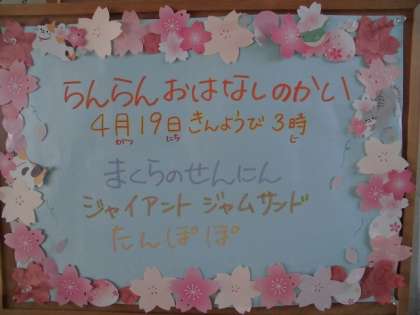 らんらんおはなしのかい
4月19日きんようび3時
がつ にち じ
まくらのせんにん
ジャイアントジャムサンド
たんぽぽ